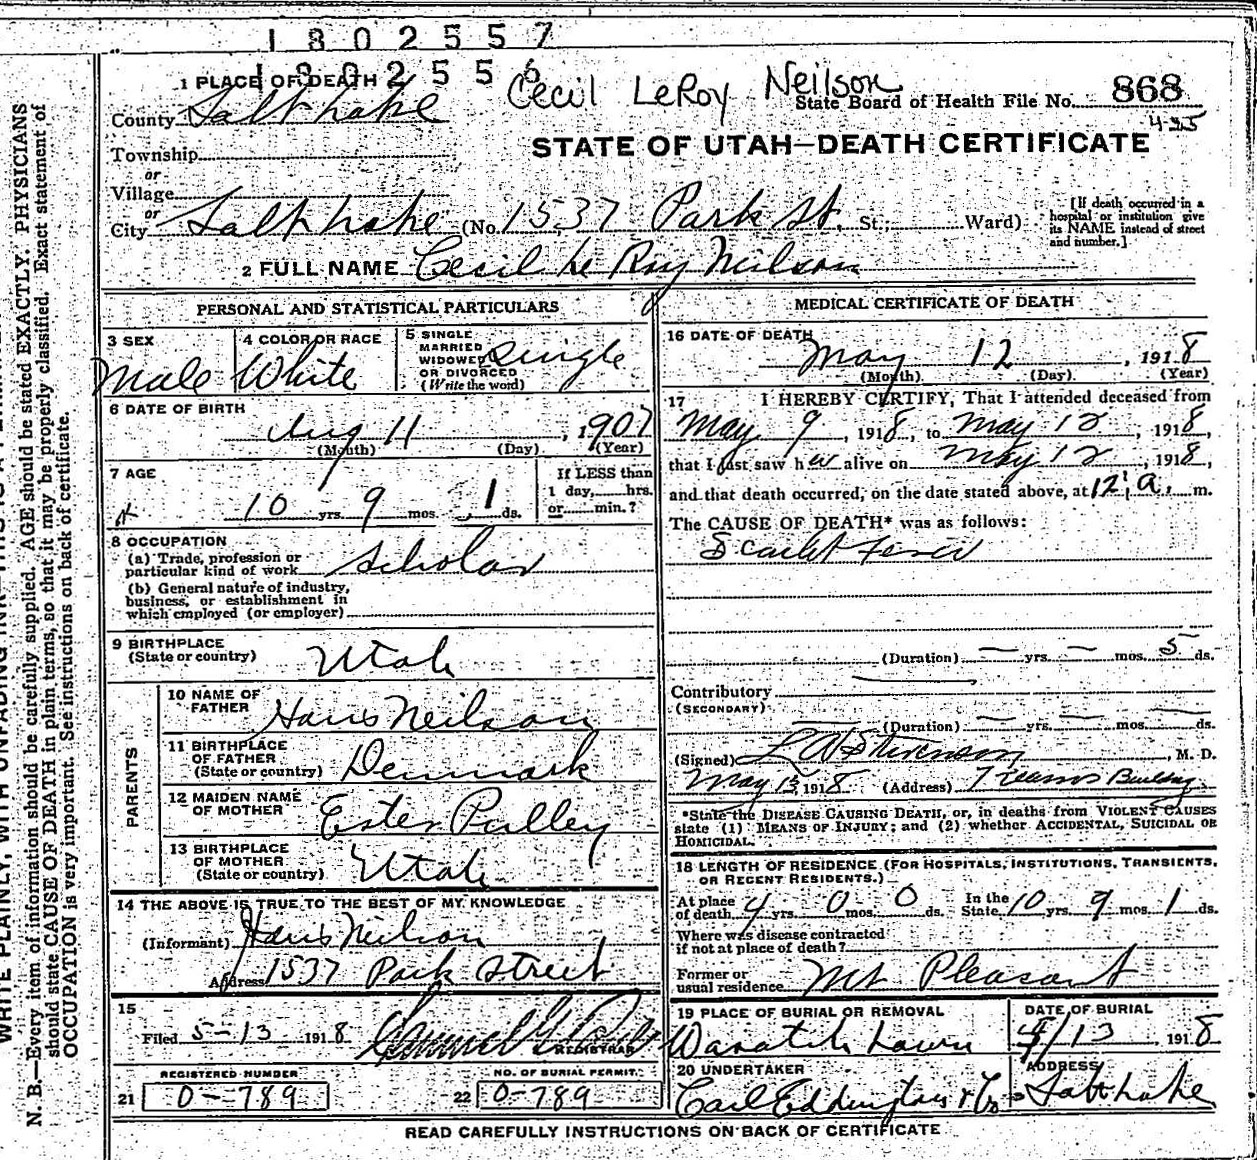 1802557
1802556
Cecil LeRoy Neilson
1 PLACE OF DEATH
State Board of Health File No. 868
County Salt Lake
435
STATE OF UTAH—DEATH CERTIFICATE
Township
or
Village
or
City Salt Lake (No. 1537 Park St. St.; Ward)
[If death occurred in a hospital or institution give its NAME instead of street and number.]
2 FULL NAME Cecil Le Roy Neilson
PERSONAL AND STATISTICAL PARTICULARS
3 SEX Male
4 COLOR OR RACE White
5 SINGLE MARRIED WIDOWED OR DIVORCED (Write the word) Single
6 DATE OF BIRTH
Aug 11, 1907
(Month) (Day) (Year)
7 AGE
10 yrs. 9 mos. 1 ds.
If LESS than 1 day, hrs. or min.?
8 OCCUPATION
(a) Trade, profession or particular kind of work Scholar
(b) General nature of industry, business, or establishment in which employed (or employer)
9 BIRTHPLACE (State or country) Utah
PARENTS
10 NAME OF FATHER Hans Neilson
11 BIRTHPLACE OF FATHER (State or country) Denmark
12 MAIDEN NAME OF MOTHER Ester Pulley
13 BIRTHPLACE OF MOTHER (State or country) Utah
14 THE ABOVE IS TRUE TO THE BEST OF MY KNOWLEDGE
(Informant) Hans Neilson
Address 1537 Park Street
15
Filed 5-13 1918
REGISTRAR
REGISTERED NUMBER
21 0-789
NO. OF BURIAL PERMIT
22 0-789
MEDICAL CERTIFICATE OF DEATH
16 DATE OF DEATH
May 12, 1918
(Month) (Day) (Year)
17 I HEREBY CERTIFY, That I attended deceased from
May 9, 1918, to May 12, 1918,
that I last saw h alive on May 12, 1918,
and that death occurred, on the date stated above, at 12 a. m.
The CAUSE OF DEATH* was as follows:
Scarlet fever
(Duration) — yrs. — mos. 5 ds.
Contributory
(SECONDARY)
(Duration) — yrs. — mos. — ds.
(Signed) Stevenson, M. D.
May 13 1918 (Address) Building
*State the DISEASE CAUSING DEATH, or, in deaths from VIOLENT CAUSES
state (1) MEANS OF INJURY; and (2) whether ACCIDENTAL, SUICIDAL OR
HOMICIDAL.
18 LENGTH OF RESIDENCE (FOR HOSPITALS, INSTITUTIONS, TRANSIENTS,
OR RECENT RESIDENTS.)
At place of death 4 yrs. 0 mos. 0 ds. In the State 10 yrs. 9 mos. 1 ds.
Where was disease contracted
if not at place of death?
Former or usual residence Mt Pleasant
19 PLACE OF BURIAL OR REMOVAL
Wasatch Lawn
DATE OF BURIAL
/13 1918
20 UNDERTAKER
Carl Eddington & Co
ADDRESS
Salt Lake
READ CAREFULLY INSTRUCTIONS ON BACK OF CERTIFICATE
N. B.—Every item of information should be carefully supplied. AGE should be stated EXACTLY. PHYSICIANS
should state CAUSE OF DEATH in plain terms, so that it may be properly classified. Exact statement of
OCCUPATION is very important. See instructions on back of certificate.